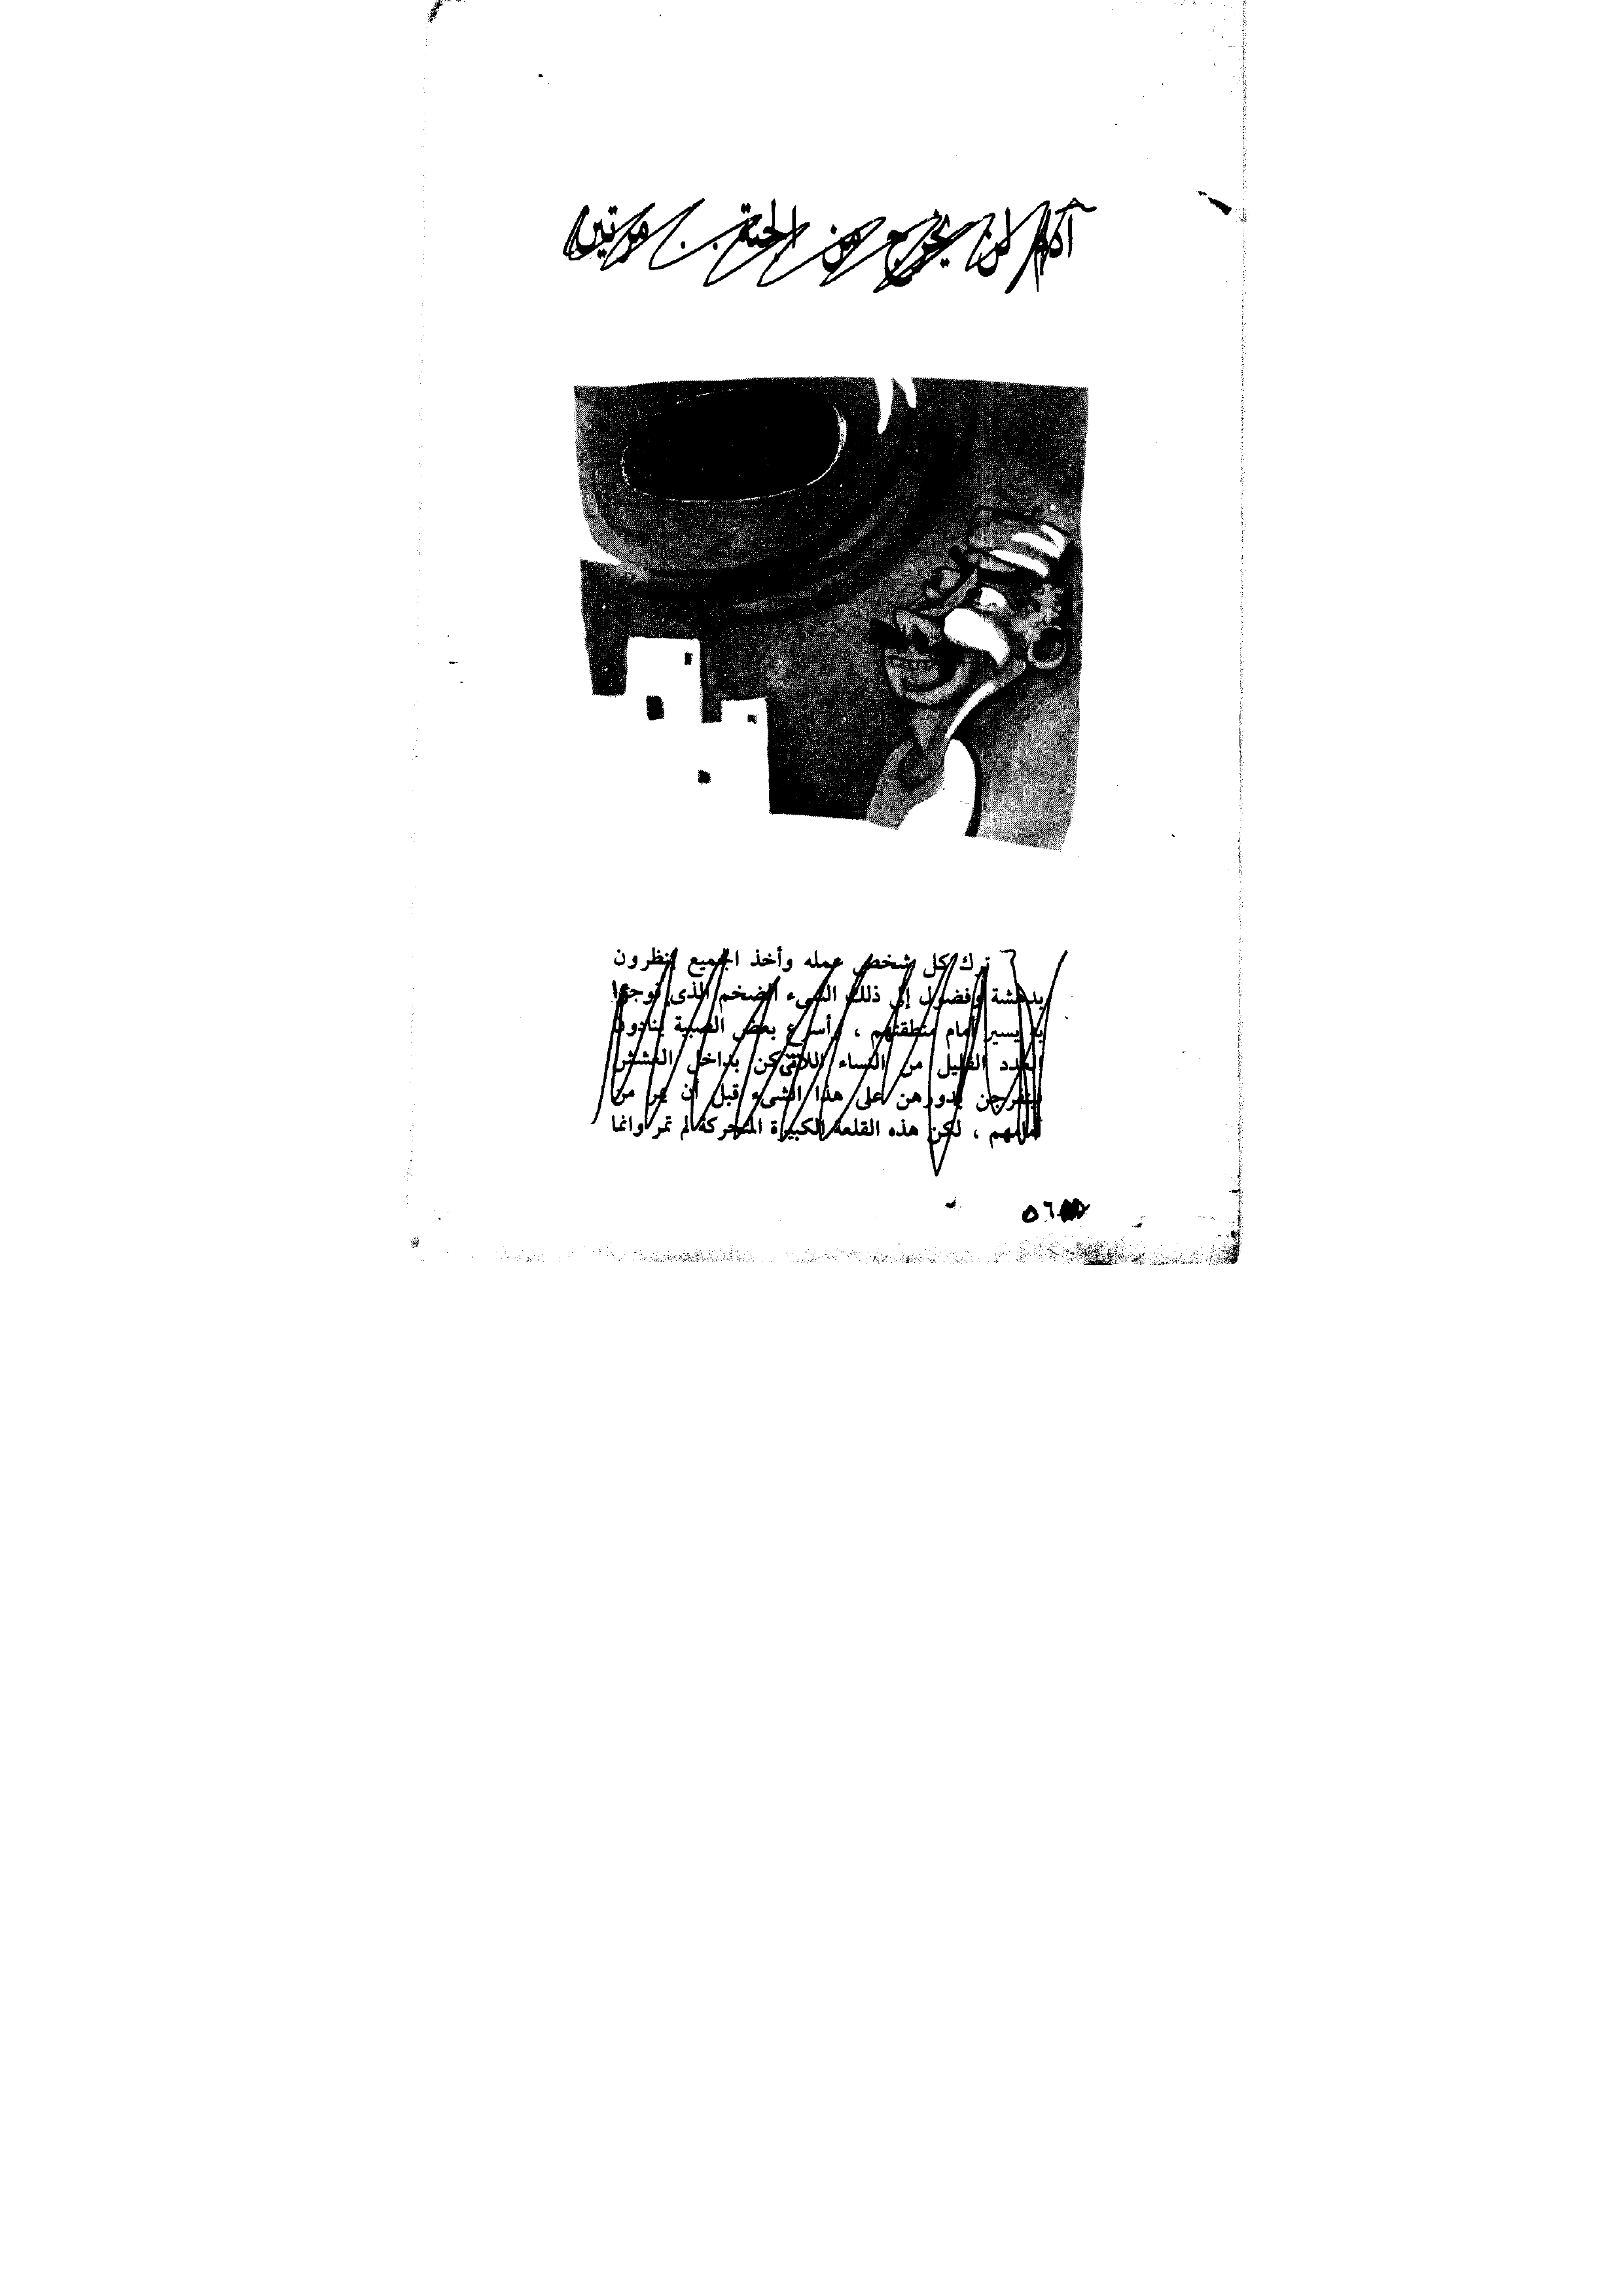 آدم لن يخرج من الجنة .. مرتين
ترك كل شخص عمله وأخذ الجميع ينظرون
بدهشة وفضول إلى ذلك الشىء الضخم الذى فوجئوا
به يسير أمام منطقتهم ، وأسرع بعض الصبية ينادون
العدد القليل من النساء اللاتى كن بداخل العشش
ليتفرجن بدورهن على هذا الشىء قبل أن يمر من
أمامهم ، لكن هذه القلعة الكبيرة المتحركة لم تمر وانما
٥٦